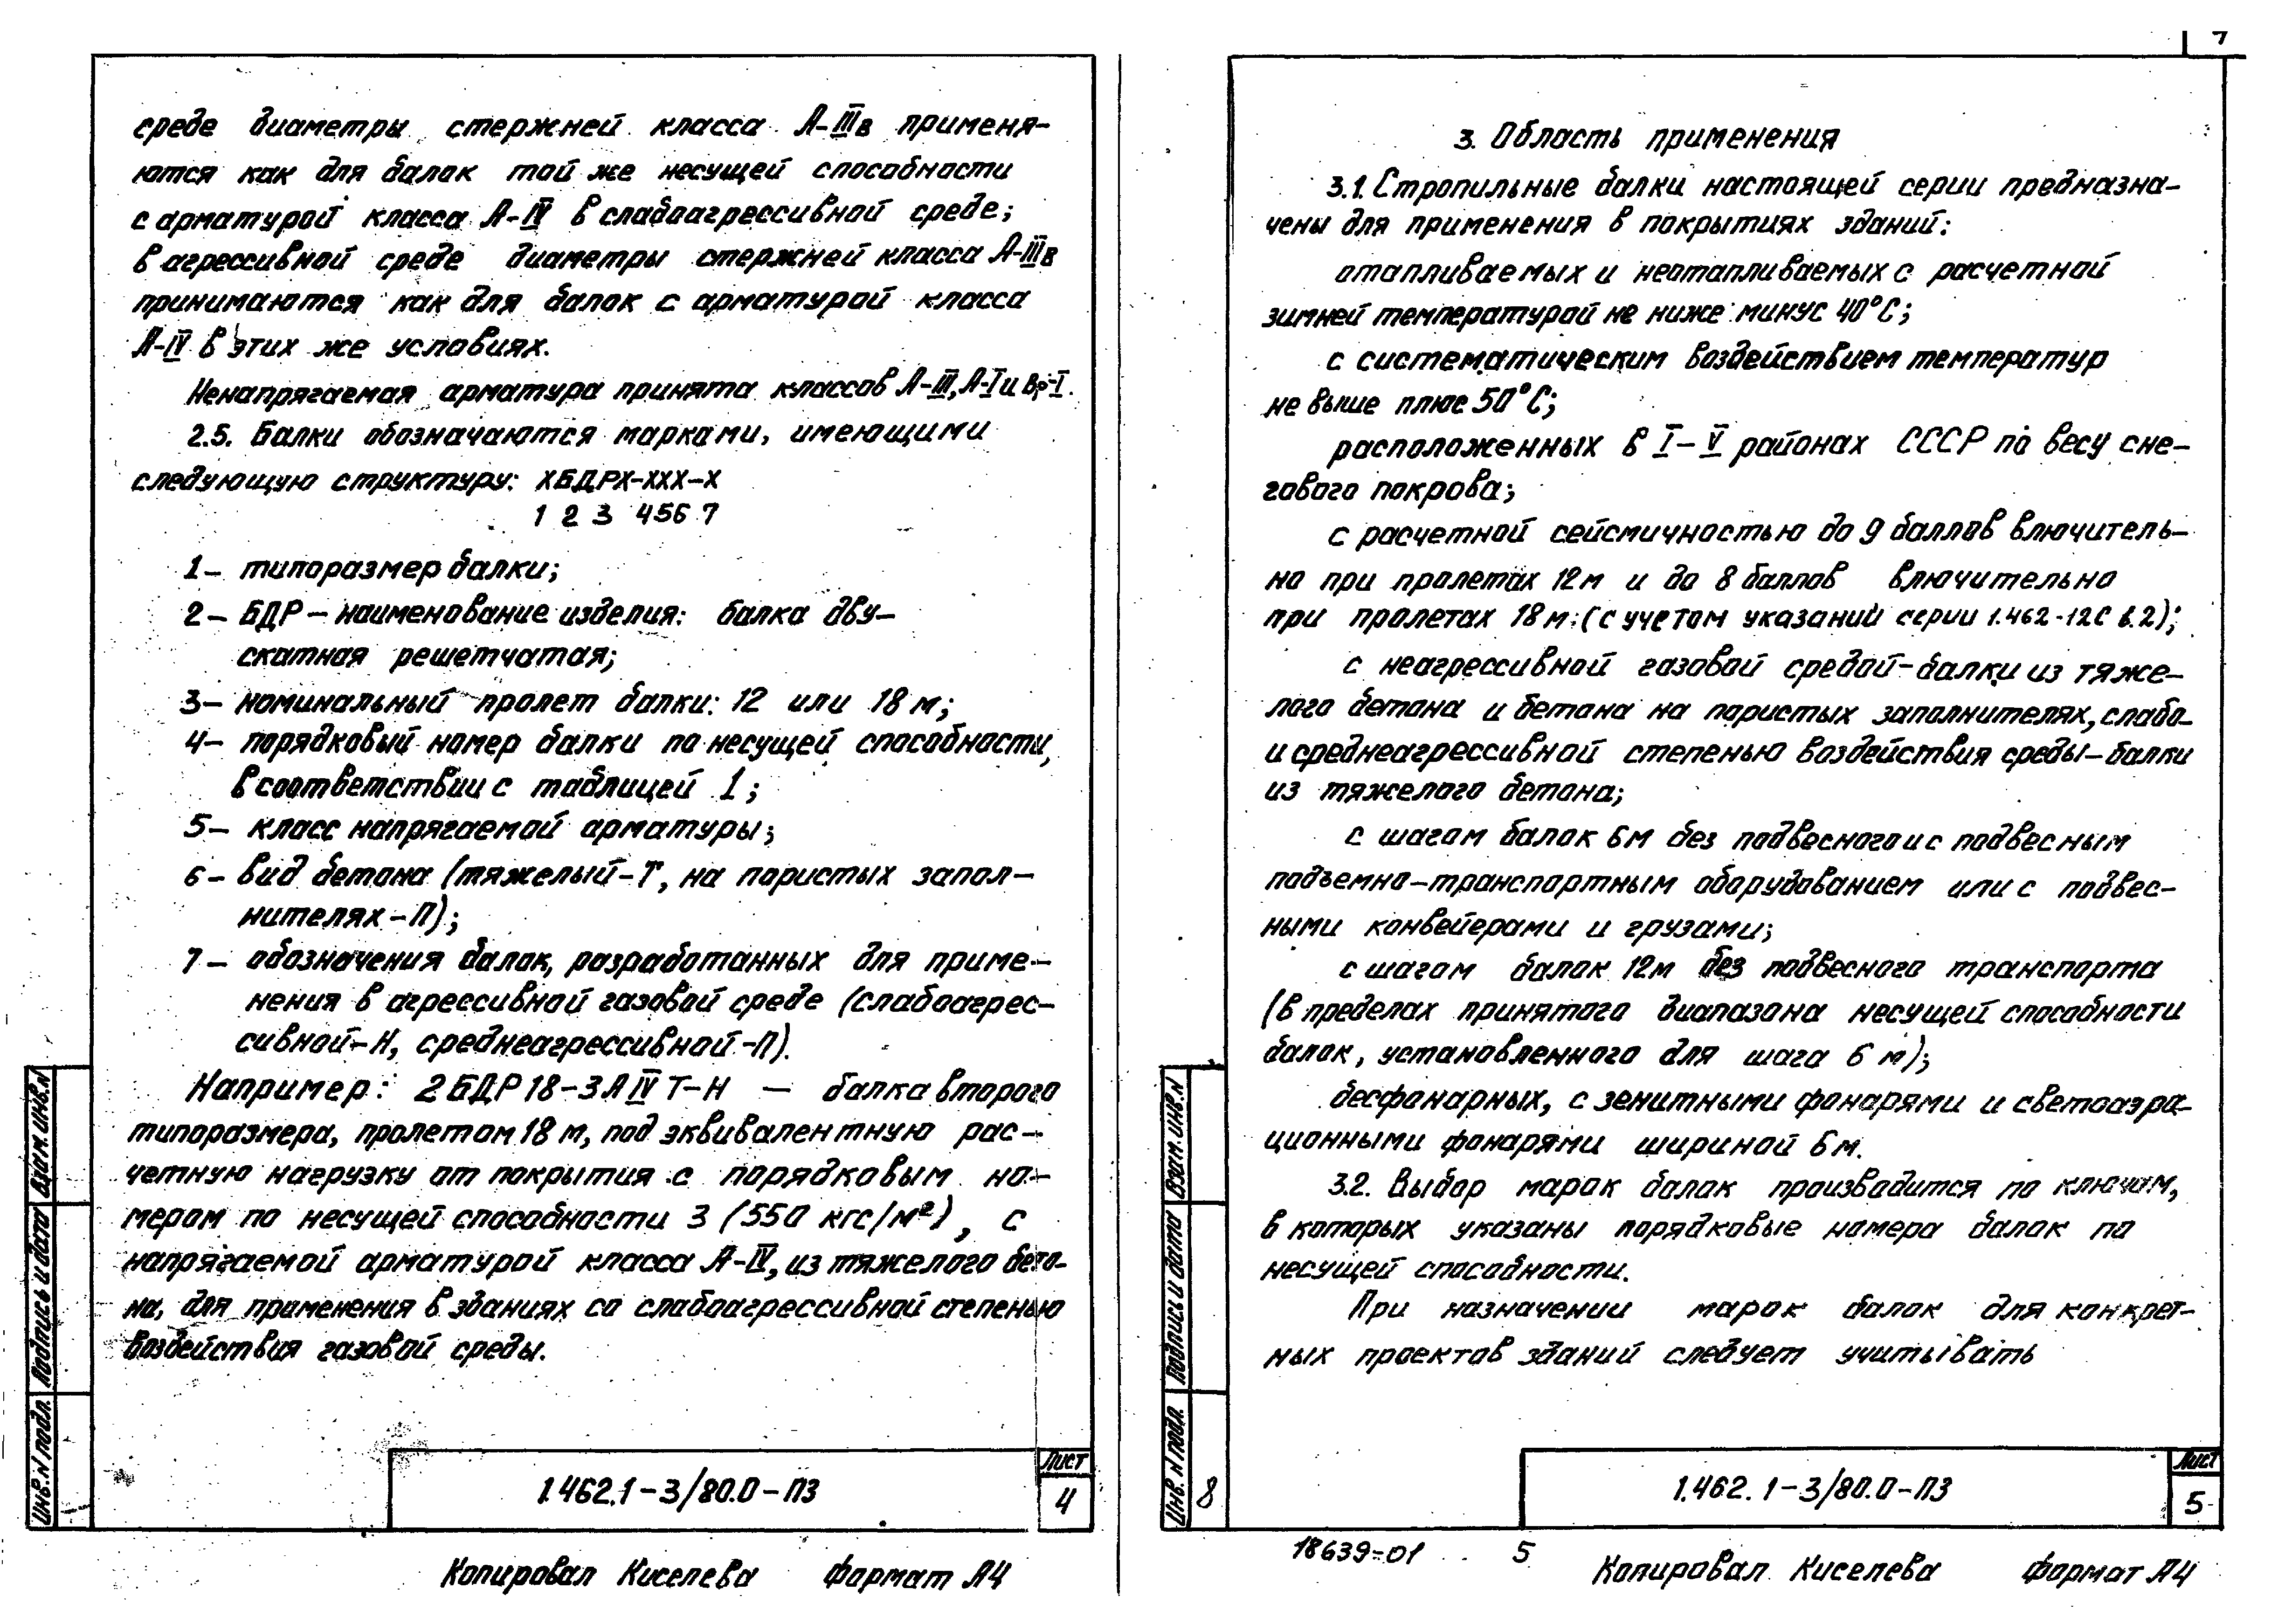 среде диаметры стержней класса А-IIIв применя-
ются как для балок той же несущей способности
с арматурой класса А-IV в слабоагрессивной среде;
в агрессивной среде диаметры стержней класса А-IIIв
принимаются как для балок с арматурой класса
А-IV в этих же условиях.
Ненапрягаемая арматура принята классов А-III, А-I и Вр-I.
2.5. Балки обозначаются марками, имеющими
следующую структуру: ХБДРХ-ХХХ-Х
1 2 3 456 7
1 - типоразмер балки;
2 - БДР - наименование изделия: балка дву-
скатная решетчатая;
3 - номинальный пролет балки: 12 или 18 м;
4 - порядковый номер балки по несущей способности,
в соответствии с таблицей 1;
5 - класс напрягаемой арматуры;
6 - вид бетона (тяжелый - Т, на пористых запол-
нителях - П);
7 - обозначения балок, разработанных для приме-
нения в агрессивной газовой среде (слабоагрес-
сивной - Н, среднеагрессивной - П).
Например: 2БДР18-3АIVТ-Н — балка второго
типоразмера, пролетом 18 м, под эквивалентную рас-
четную нагрузку от покрытия с порядковым но-
мером по несущей способности 3 (550 кгс/м²), с
напрягаемой арматурой класса А-IV, из тяжелого бето-
на, для применения в зданиях со слабоагрессивной степенью
воздействия газовой среды.
Взам. инв. N
Подпись и дата
Инв. N подл.
1.462.1-3/80.0-ПЗ
Лист
4
Копировал Киселева Формат А4
7
3. Область применения
3.1. Стропильные балки настоящей серии предназна-
чены для применения в покрытиях зданий:
отапливаемых и неотапливаемых с расчетной
зимней температурой не ниже минус 40°С;
с систематическим воздействием температур
не выше плюс 50°С;
расположенных в I - V районах СССР по весу сне-
гового покрова;
с расчетной сейсмичностью до 9 баллов влючитель-
но при пролетах 12 м и до 8 баллов влючительно
при пролетах 18 м (с учетом указаний серии 1.462-12С в.2);
с неагрессивной газовой средой - балки из тяже-
лого бетона и бетона на пористых заполнителях, слабо-
и среднеагрессивной степенью воздействия среды - балки
из тяжелого бетона;
с шагом балок 6м без подвесного и с подвесным
подъемно-транспортным оборудованием или с подвес-
ными конвейерами и грузами;
с шагом балок 12м без подвесного транспорта
(в пределах принятого диапазона несущей способности
балок, установленного для шага 6 м);
бесфонарных, с зенитными фонарями и светоаэра-
ционными фонарями шириной 6м.
3.2. Выбор марок балок производится по ключам,
в которых указаны порядковые номера балок по
несущей способности.
При назначении марок балок для конкрет-
ных проектов зданий следует учитывать
Взам. инв. N
Подпись и дата
Инв. N подл.
8
1.462.1-3/80.0-ПЗ
Лист
5
18639-01 5
Копировал Киселева Формат А4